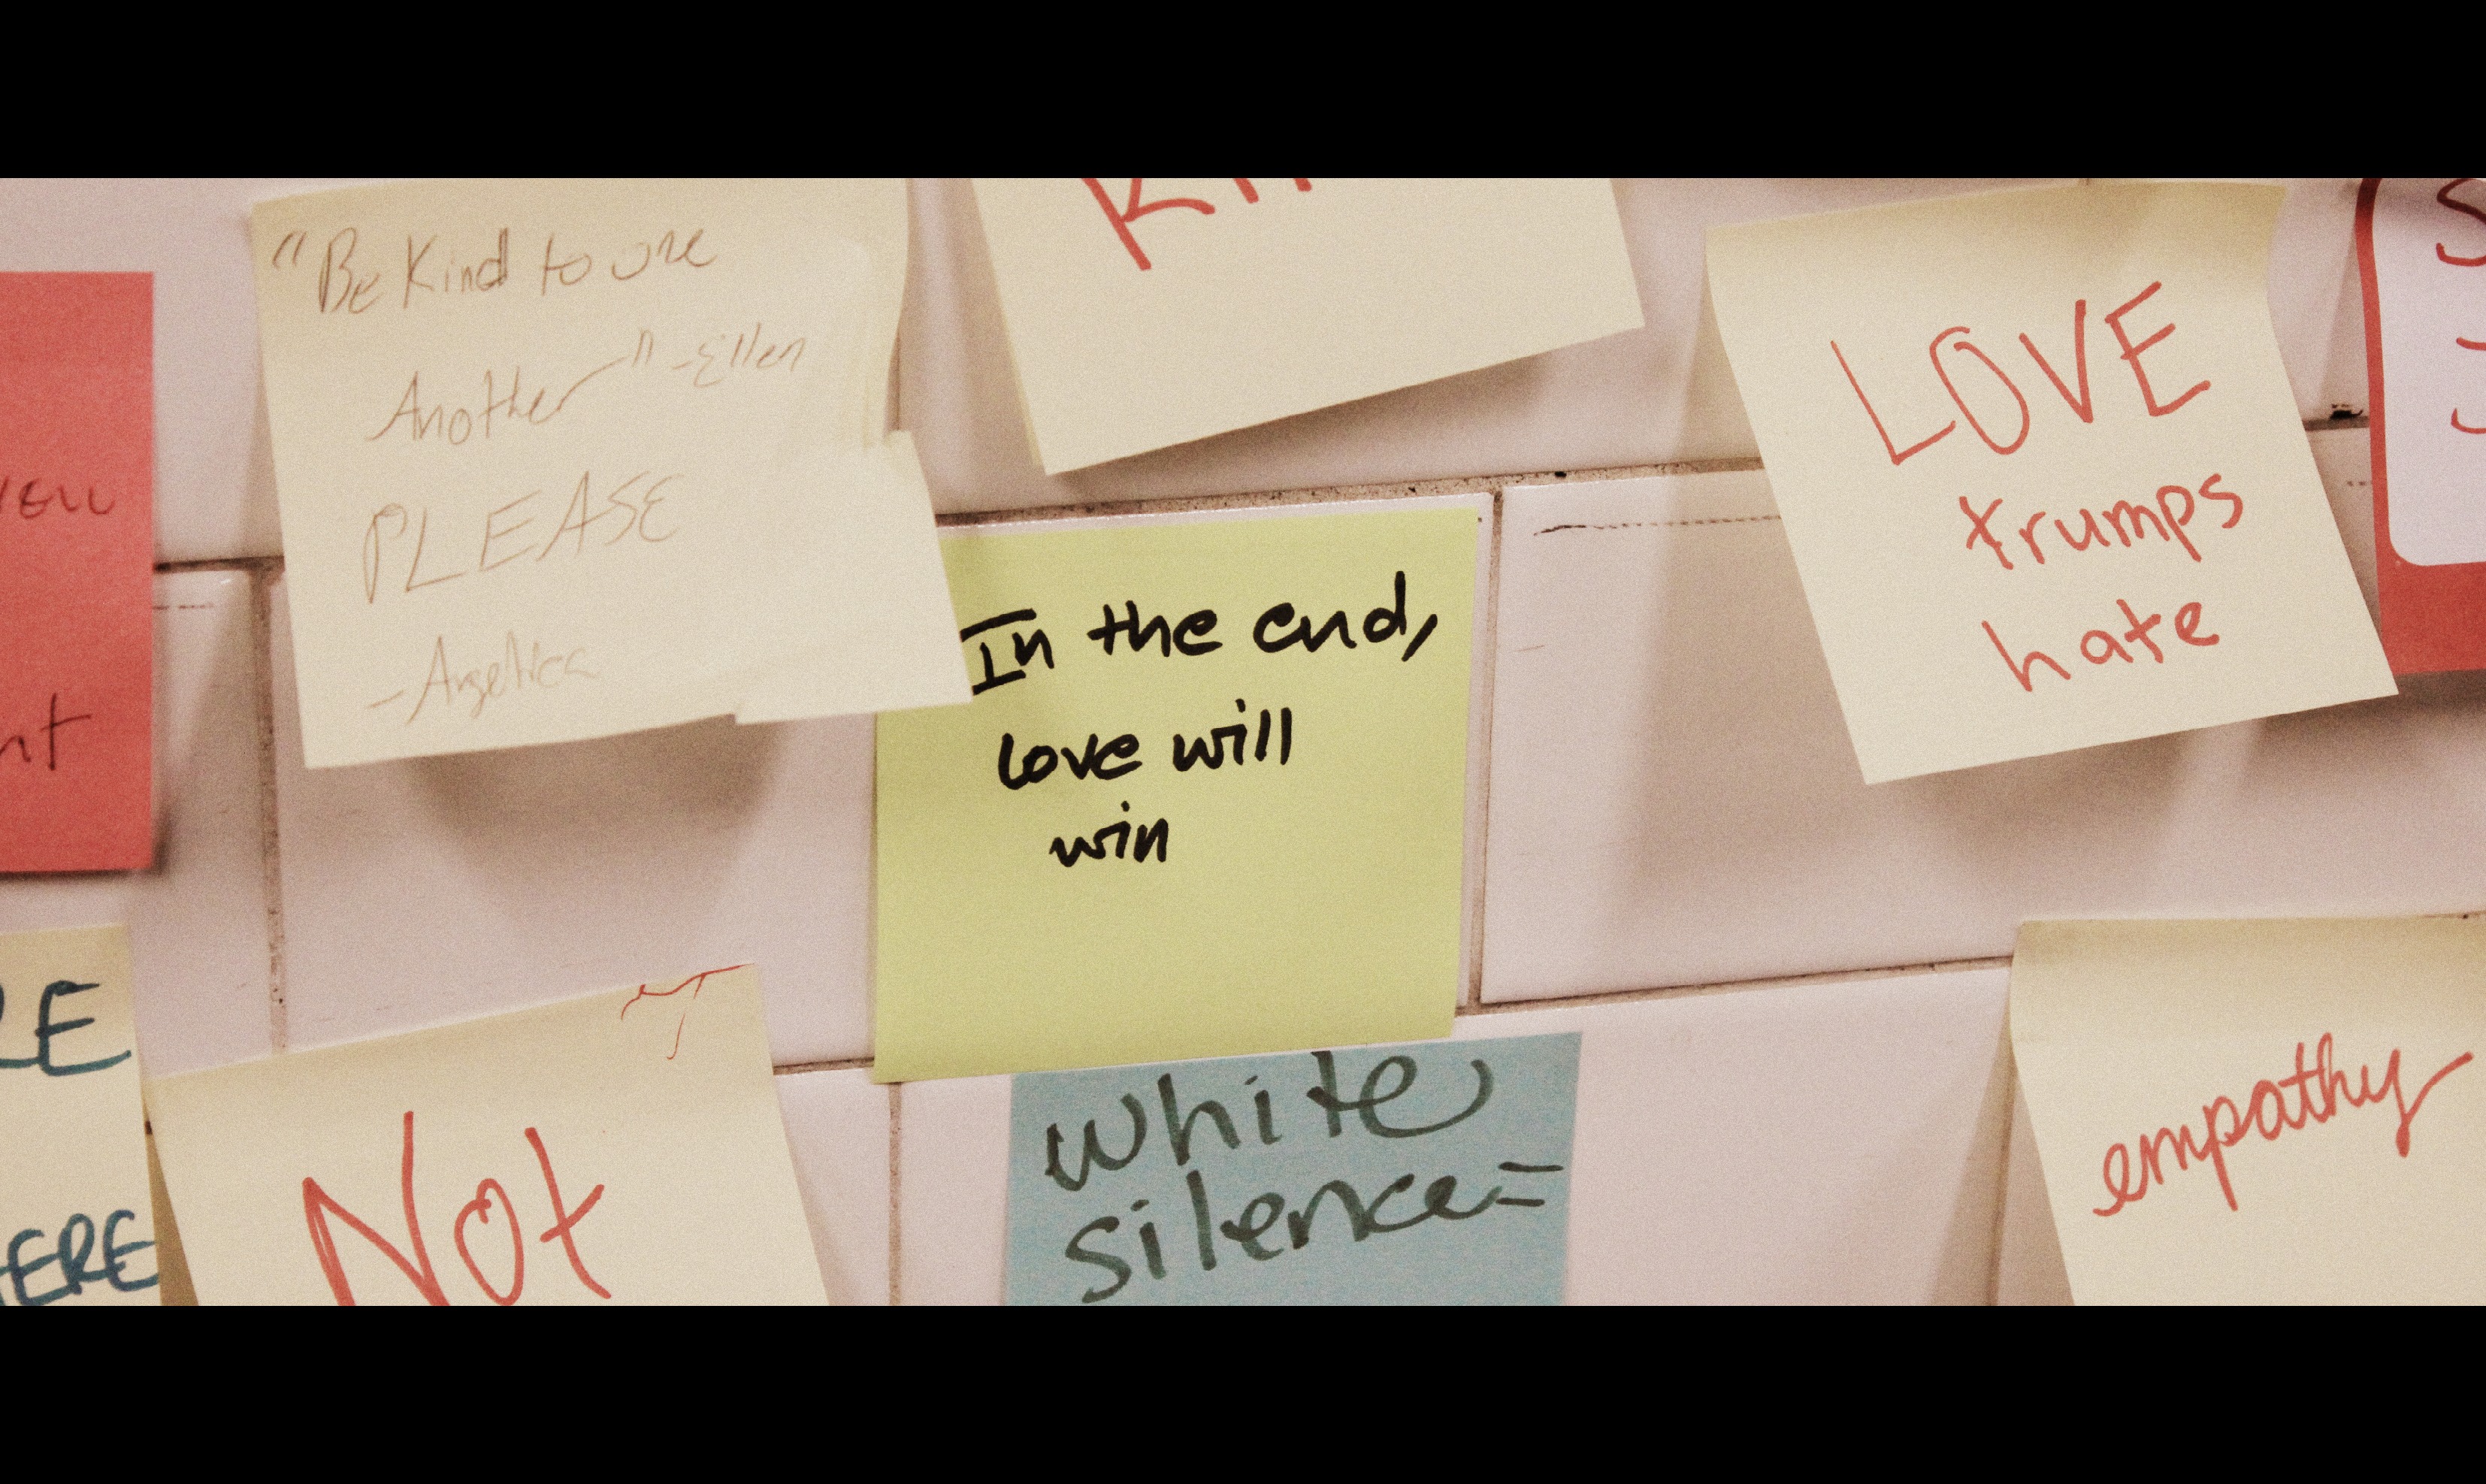 "Be Kind to one
Another" -Ellen
PLEASE
-Angelica
LOVE
trumps
hate
In the end,
love will
win
Not
white
silence=
empathy